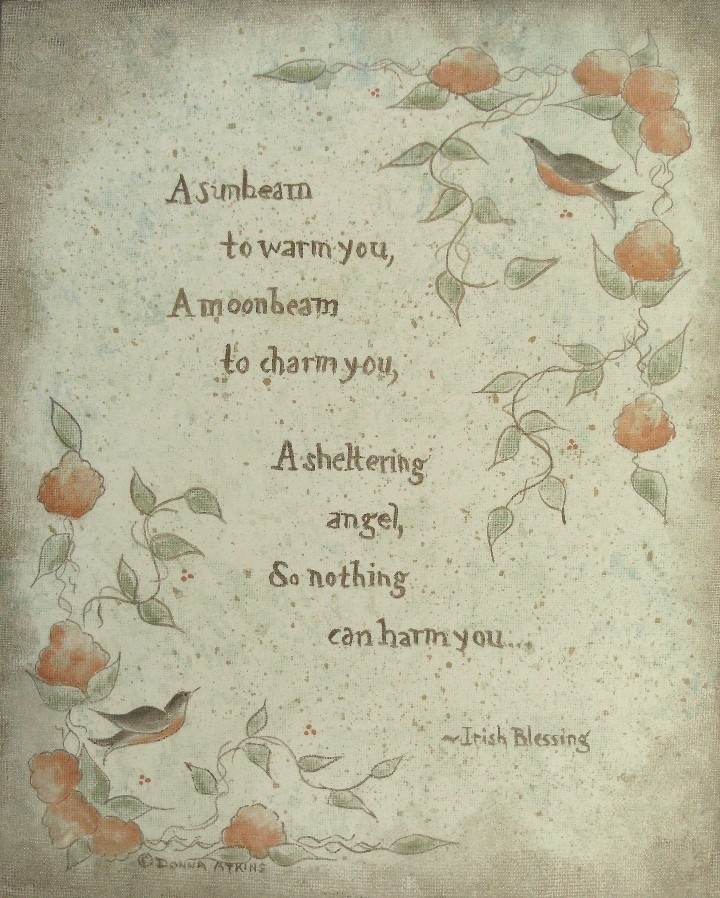 A sunbeam
to warm you,
A moonbeam
to charm you,
A sheltering
angel,
So nothing
can harm you...
~Irish Blessing
© DONNA ATKINS